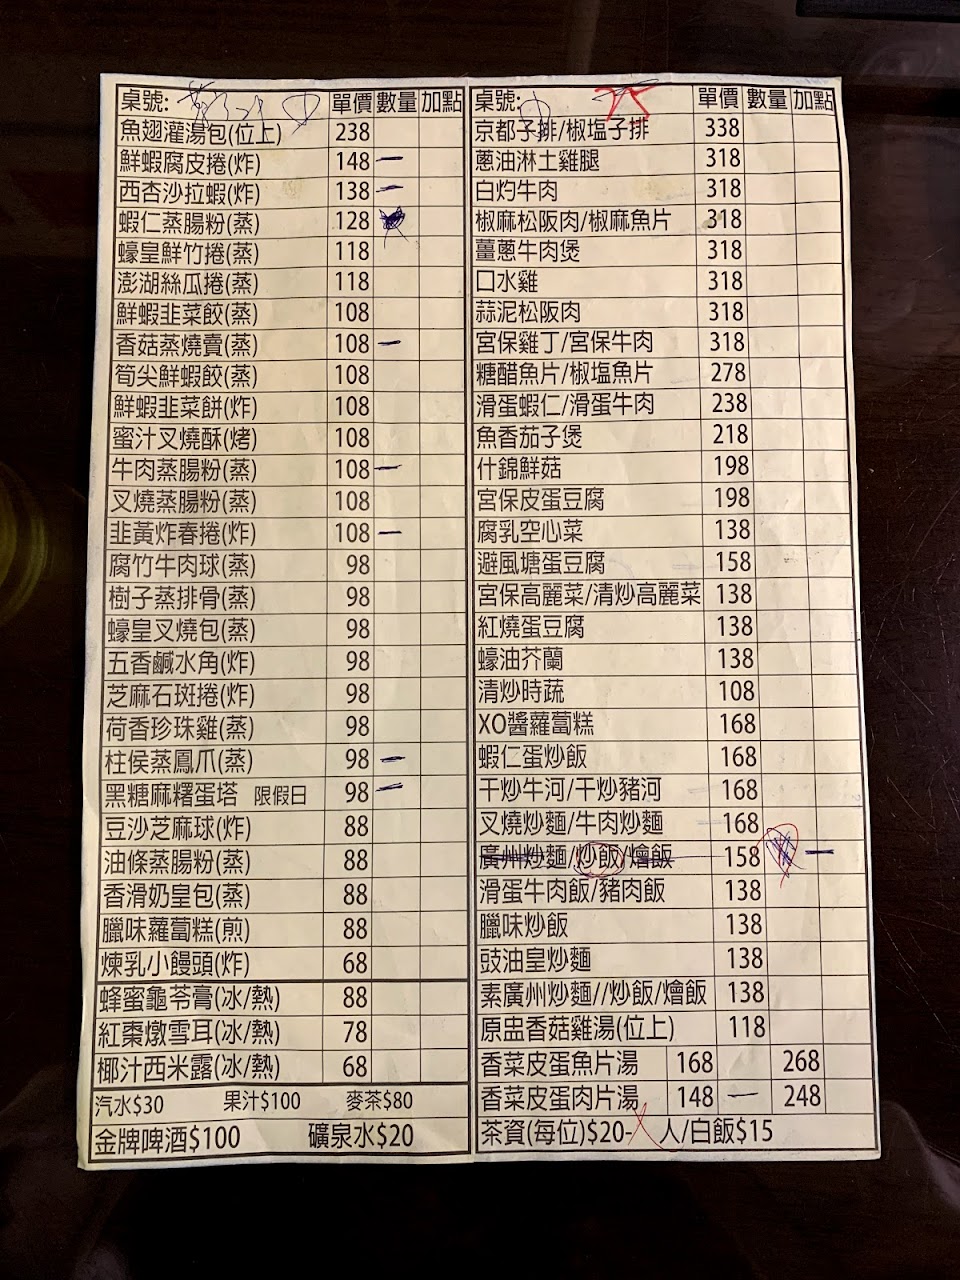 桌號: 單價 數量 加點
魚翅灌湯包(位上) 238
鮮蝦腐皮捲(炸) 148 一
西杏沙拉蝦(炸) 138 一
蝦仁蒸腸粉(蒸) 128
蠔皇鮮竹捲(蒸) 118
澎湖絲瓜捲(蒸) 118
鮮蝦韭菜餃(蒸) 108
香菇蒸燒賣(蒸) 108 一
筍尖鮮蝦餃(蒸) 108
鮮蝦韭菜餅(炸) 108
蜜汁叉燒酥(烤) 108
牛肉蒸腸粉(蒸) 108 一
叉燒蒸腸粉(蒸) 108
韭黃炸春捲(炸) 108 一
腐竹牛肉球(蒸) 98
樹子蒸排骨(蒸) 98
蠔皇叉燒包(蒸) 98
五香鹹水角(炸) 98
芝麻石斑捲(炸) 98
荷香珍珠雞(蒸) 98
柱侯蒸鳳爪(蒸) 98 一
黑糖麻糬蛋塔 限假日 98 一
豆沙芝麻球(炸) 88
油條蒸腸粉(蒸) 88
香滑奶皇包(蒸) 88
臘味蘿蔔糕(煎) 88
煉乳小饅頭(炸) 68
蜂蜜龜苓膏(冰/熱) 88
紅棗燉雪耳(冰/熱) 78
椰汁西米露(冰/熱) 68
汽水$30 果汁$100 麥茶$80
金牌啤酒$100 礦泉水$20
桌號: 單價 數量 加點
京都子排/椒塩子排 338
蔥油淋土雞腿 318
白灼牛肉 318
椒麻松阪肉/椒麻魚片 318
薑蔥牛肉煲 318
口水雞 318
蒜泥松阪肉 318
宮保雞丁/宮保牛肉 318
糖醋魚片/椒塩魚片 278
滑蛋蝦仁/滑蛋牛肉 238
魚香茄子煲 218
什錦鮮菇 198
宮保皮蛋豆腐 198
腐乳空心菜 138
避風塘蛋豆腐 158
宮保高麗菜/清炒高麗菜 138
紅燒蛋豆腐 138
蠔油芥蘭 138
清炒時蔬 108
XO醬蘿蔔糕 168
蝦仁蛋炒飯 168
干炒牛河/干炒豬河 168
叉燒炒麵/牛肉炒麵 168
廣州炒麵/炒飯/燴飯 158 一
滑蛋牛肉飯/豬肉飯 138
臘味炒飯 138
豉油皇炒麵 138
素廣州炒麵//炒飯/燴飯 138
原盅香菇雞湯(位上) 118
香菜皮蛋魚片湯 168 268
香菜皮蛋肉片湯 148 一 248
茶資(每位)$20- 人/白飯$15